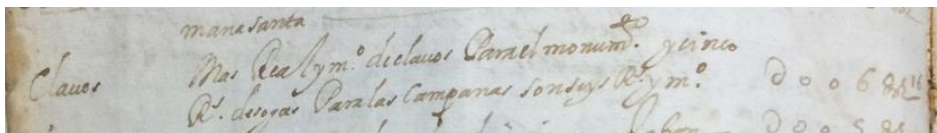 mana santa
Clauos Mas Real y mº. de clauos Para el monumto. y cinco
Rs. de sogas Para las Campanas son seys Rs. y mº. D 0 0 6